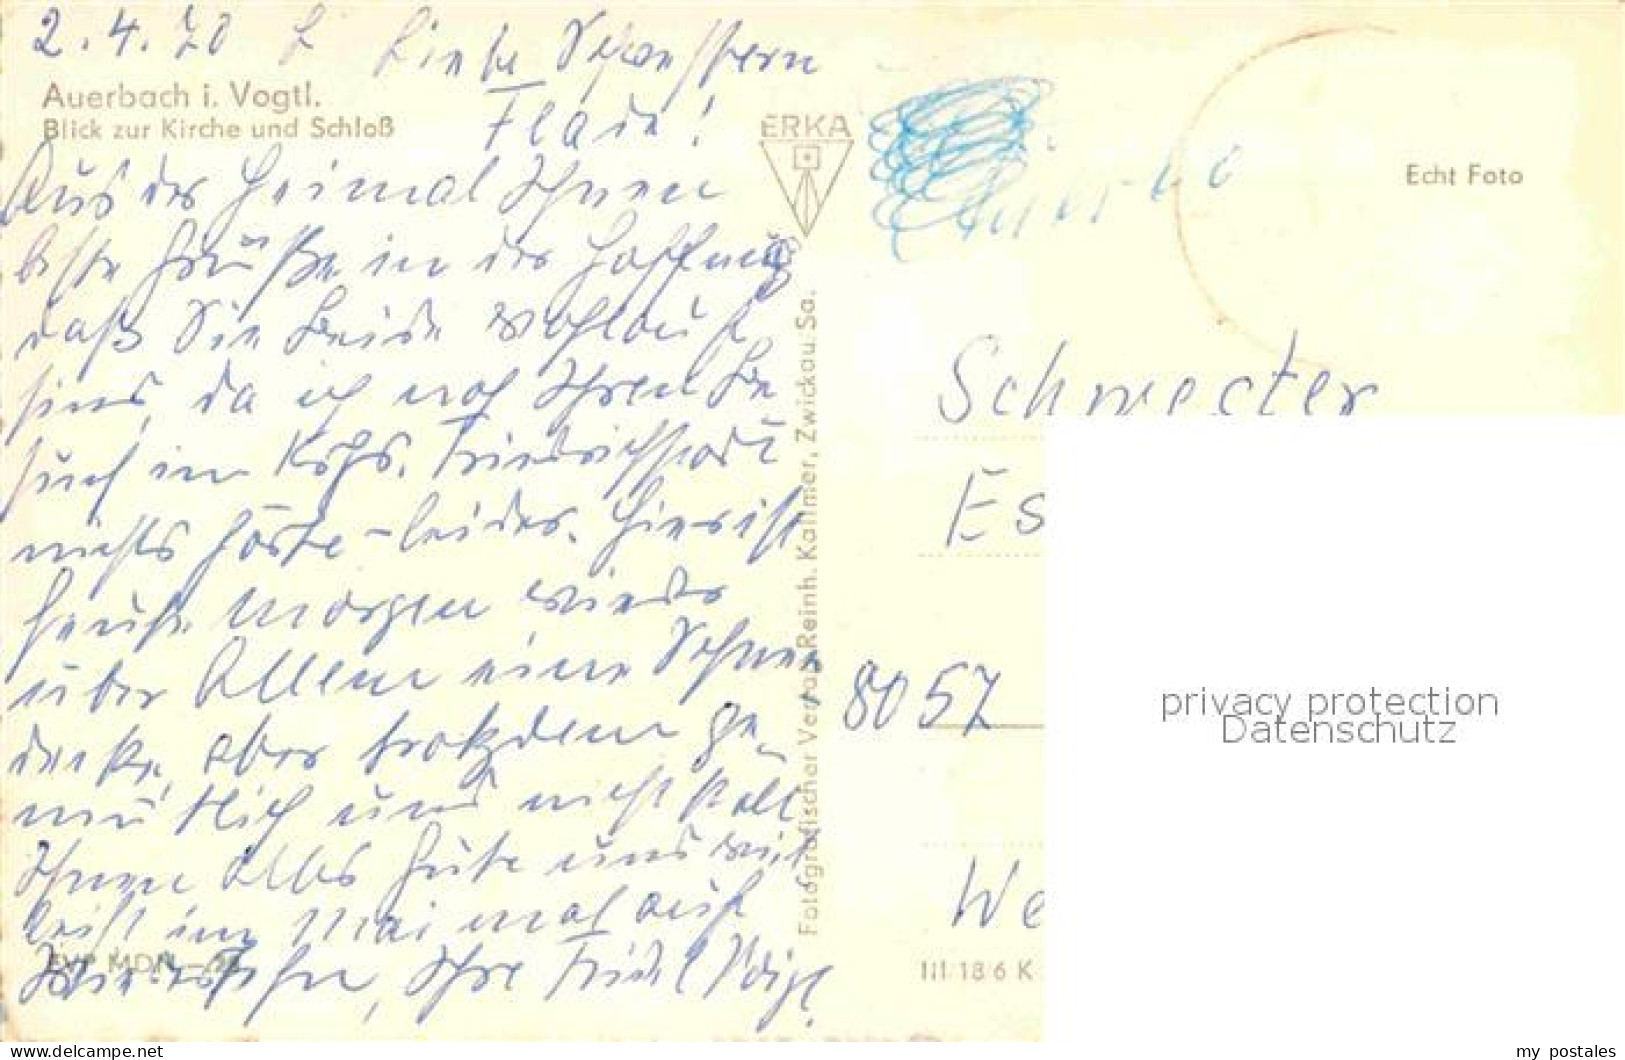 2.4.70 L Liebe Schwestern
Auerbach i. Vogtl.
Blick zur Kirche und Schloß
Flade!
ERKA
Echt Foto
Aus der Heimat Ihnen
beste Grüße in der Hoffnung
daß Sie beide wohlauf
sind, da ich nach Ihrem Be
such im Krhs. Friedrichstadt
nichts hörte – leider. Hier ist
heute Morgen wieder
über Allem eine Schnee
decke, aber trotzdem ge-
mütlich und nicht kalt
Ihnen alles Gute und viel
leicht im Mai mal auf
Wiedersehn, Ihre Friedel
EVP MDN
Fotografischer Verlag Reinh. Kallmer, Zwickau Sa.
Schwester
Es
8057
We
III/18/6 K
privacy protection
Datenschutz
www.delcampe.net
my_postales